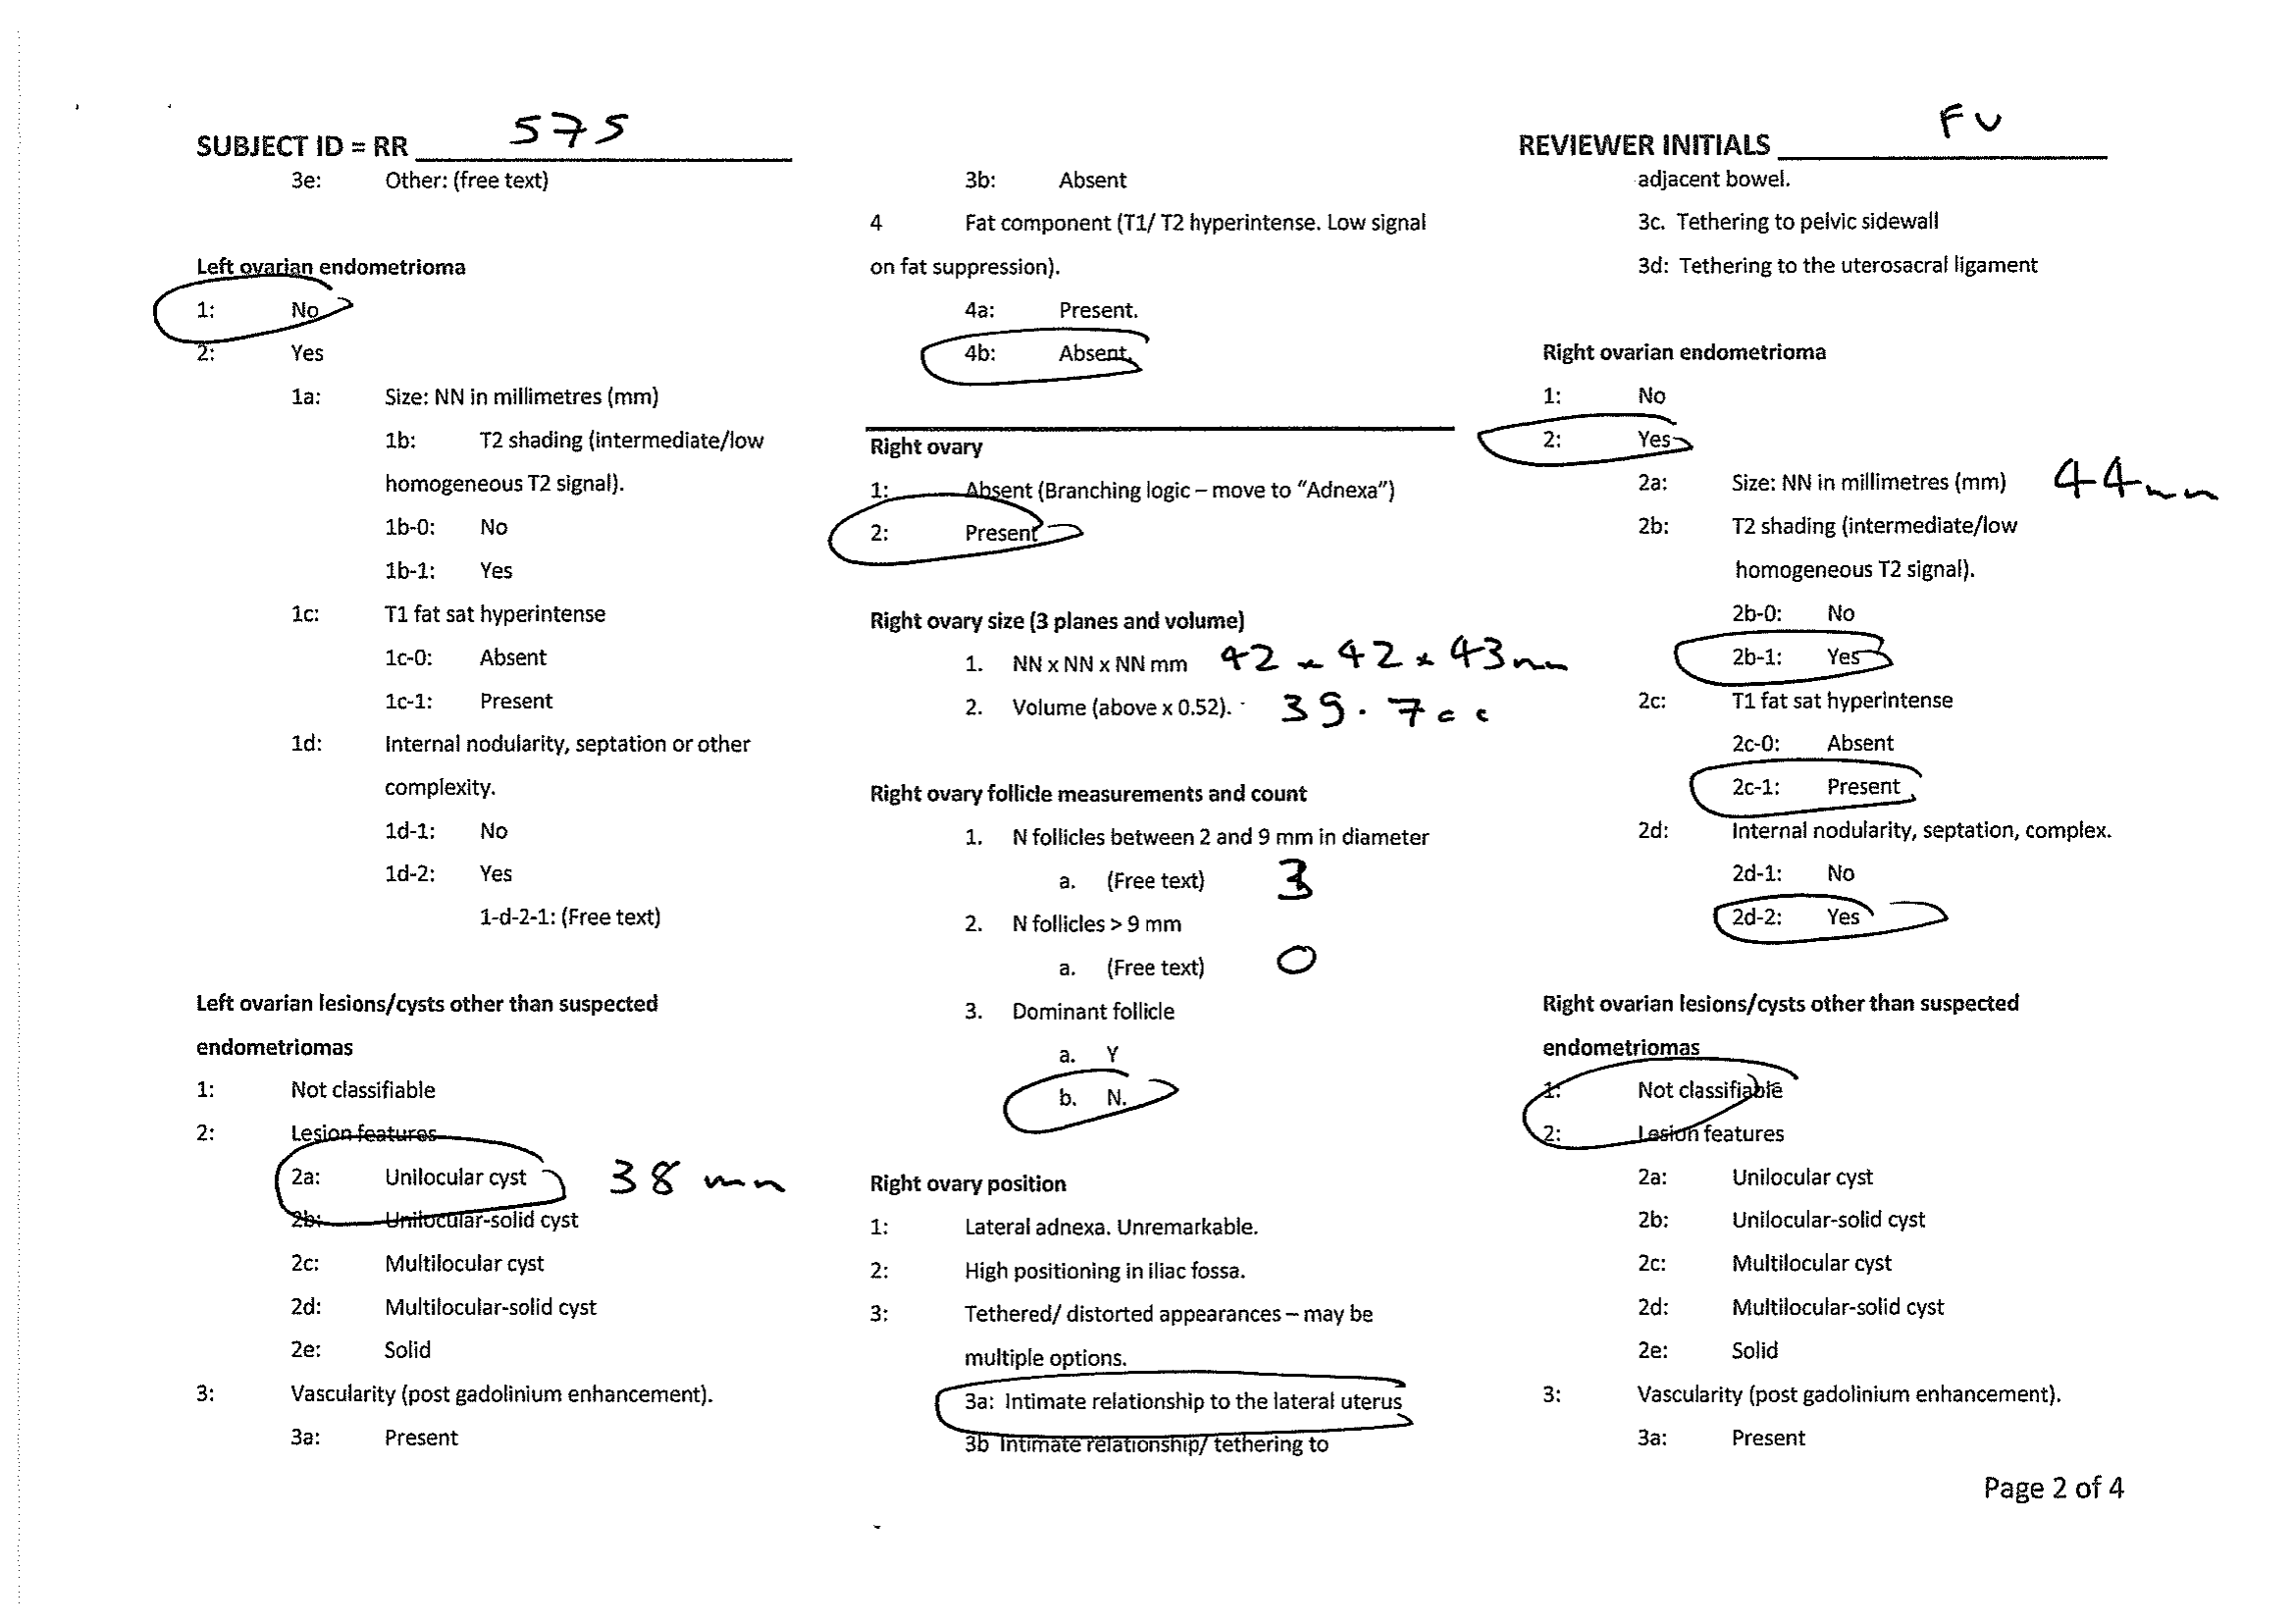 SUBJECT ID = RR 575
3e: Other: (free text)
Left ovarian endometrioma
1: No
2: Yes
1a: Size: NN in millimetres (mm)
1b: T2 shading (intermediate/low
homogeneous T2 signal).
1b-0: No
1b-1: Yes
1c: T1 fat sat hyperintense
1c-0: Absent
1c-1: Present
1d: Internal nodularity, septation or other
complexity.
1d-1: No
1d-2: Yes
1-d-2-1: (Free text)
Left ovarian lesions/cysts other than suspected
endometriomas
1: Not classifiable
2: Lesion features
2a: Unilocular cyst 38 mm
2b: Unilocular-solid cyst
2c: Multilocular cyst
2d: Multilocular-solid cyst
2e: Solid
3: Vascularity (post gadolinium enhancement).
3a: Present
3b: Absent
4 Fat component (T1/ T2 hyperintense. Low signal
on fat suppression).
4a: Present.
4b: Absent.
Right ovary
1: Absent (Branching logic – move to “Adnexa”)
2: Present
Right ovary size (3 planes and volume)
1. NN x NN x NN mm 42 x 42 x 43mm
2. Volume (above x 0.52). 39.7cc
Right ovary follicle measurements and count
1. N follicles between 2 and 9 mm in diameter
a. (Free text) 3
2. N follicles > 9 mm
a. (Free text) 0
3. Dominant follicle
a. Y
b. N.
Right ovary position
1: Lateral adnexa. Unremarkable.
2: High positioning in iliac fossa.
3: Tethered/ distorted appearances – may be
multiple options.
3a: Intimate relationship to the lateral uterus
3b Intimate relationship/ tethering to
REVIEWER INITIALS FV
adjacent bowel.
3c. Tethering to pelvic sidewall
3d: Tethering to the uterosacral ligament
Right ovarian endometrioma
1: No
2: Yes
2a: Size: NN in millimetres (mm) 44mm
2b: T2 shading (intermediate/low
homogeneous T2 signal).
2b-0: No
2b-1: Yes
2c: T1 fat sat hyperintense
2c-0: Absent
2c-1: Present
2d: Internal nodularity, septation, complex.
2d-1: No
2d-2: Yes
Right ovarian lesions/cysts other than suspected
endometriomas
1: Not classifiable
2: Lesion features
2a: Unilocular cyst
2b: Unilocular-solid cyst
2c: Multilocular cyst
2d: Multilocular-solid cyst
2e: Solid
3: Vascularity (post gadolinium enhancement).
3a: Present
Page 2 of 4